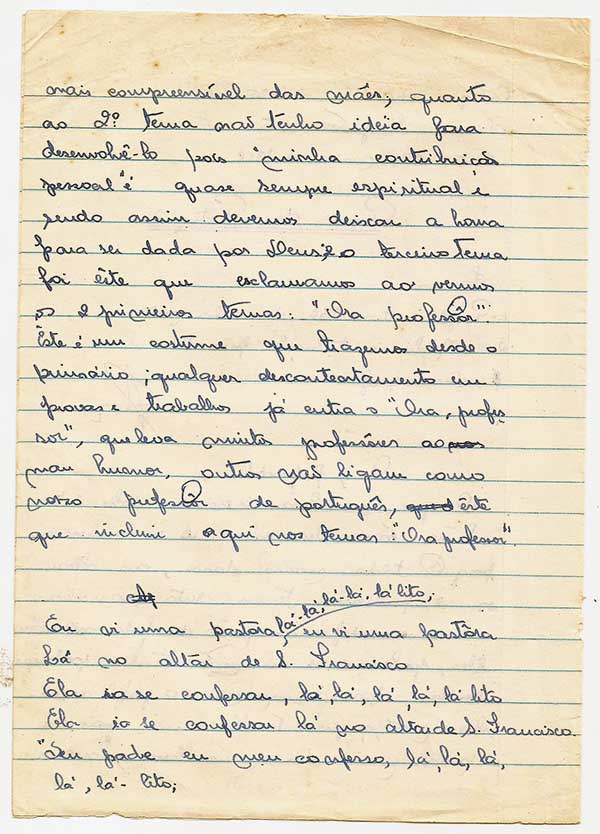 mais compreensível das mães; quanto
ao 2º tema não tenho ideia para
desenvolvê-lo pois "minha contribuição
pessoal" é quase sempre espiritual e
sendo assim devemos deixar a honra
para ser dada por Deus; e o terceiro tema
foi êste que exclamamos ao vermos
os 2 primeiros temas: "Ora professôr".
Êste é um costume que trazemos desde o
primário; qualquer descontentamento em
provas e trabalhos já entra o "Ora, profes
sor", que leva muitos professôres ao
mau humor, outros não ligam como
nosso professôr de português, êste
que incluni aqui nos temas: "Ora professor".
Eu vi uma pastora, lá-lá, lá-lá, lá lito, eu vi uma pastôra
Lá no altár de S. Francisco
Ela ia se confessar, lá, lá, lá, lá, lá lito
Ela ia se confessar lá no altar de S. Francisco.
"Seu padre eu meu confesso, lá, lá, lá,
lá, lá-lito;